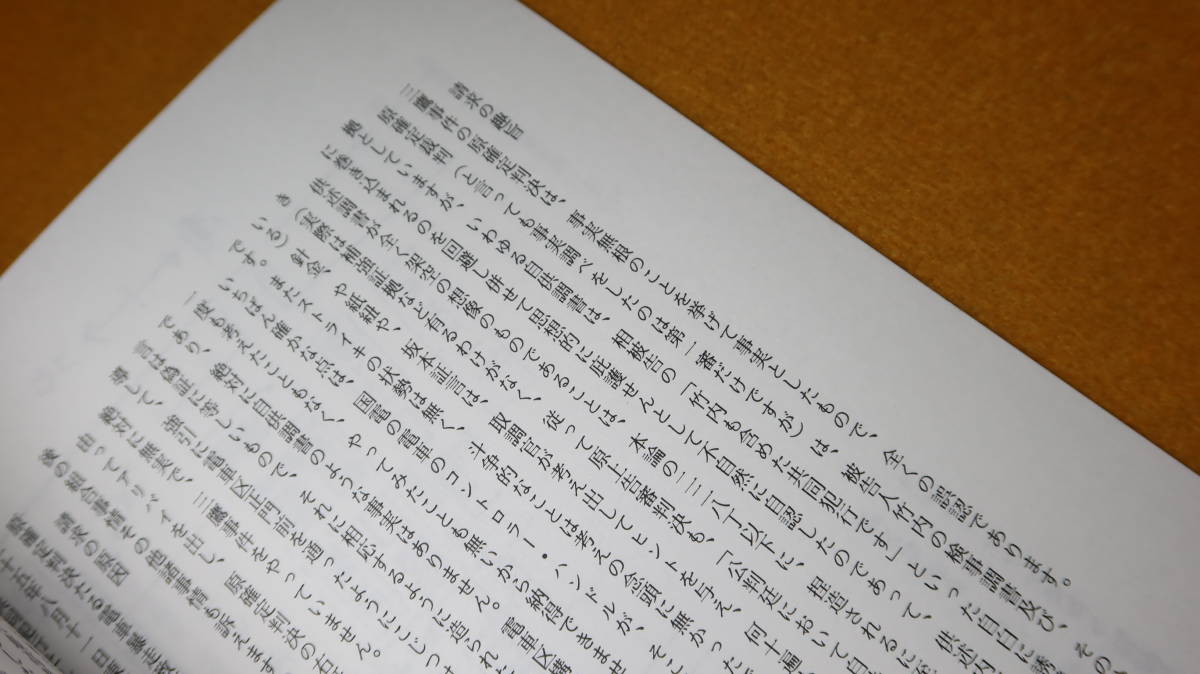 請求の趣旨
三鷹事件の原確定判決は、事実無根のことを挙げて事実としたもので、全くの誤認であります。
原確定裁判（と言っても事実調べをしたのは第一審だけですが）は、被告人竹内の検事調書及び、その
拠としていますが、いわゆる自供調書は、相被告の「竹内も含めた共同犯行です」といった自白に誘
に巻き込まれるのを回避し併せて思想的に庇護せんとして不自然に自認したのであって、供述内
供述調書が全く架空の想像のものであることは、本論の二三八丁以下に、捏造されるに至
（実際は補強証拠など有るわけがなく、従って原上告審判決も、「公判廷において自
き
いる）針金や紙紐や、坂本証言は、取調官が考え出してヒントを与え、何十遍
です。またストライキの状勢は無く、斗争的なことは考えの念頭に無かったで
いちばん確かな点は、国電の電車のコントローラー・ハンドルが、そこ
一度も考えたこともなく、やってみたことも無いから納得できませ
であり、絶対に自供調書のような事実はありません。電車区構
言は偽証に等しいもので、それに相応するように造られた
導して、強引に電車区正門前を通ったようにこじつけ
絶対に無実で、三鷹事件をやっていません。
由ってアリバイを出し、原確定判決の右
後の組合事情その他諸事情も訴えます
請求の原因
原確定判決たる電車暴走
十五年八月十一日